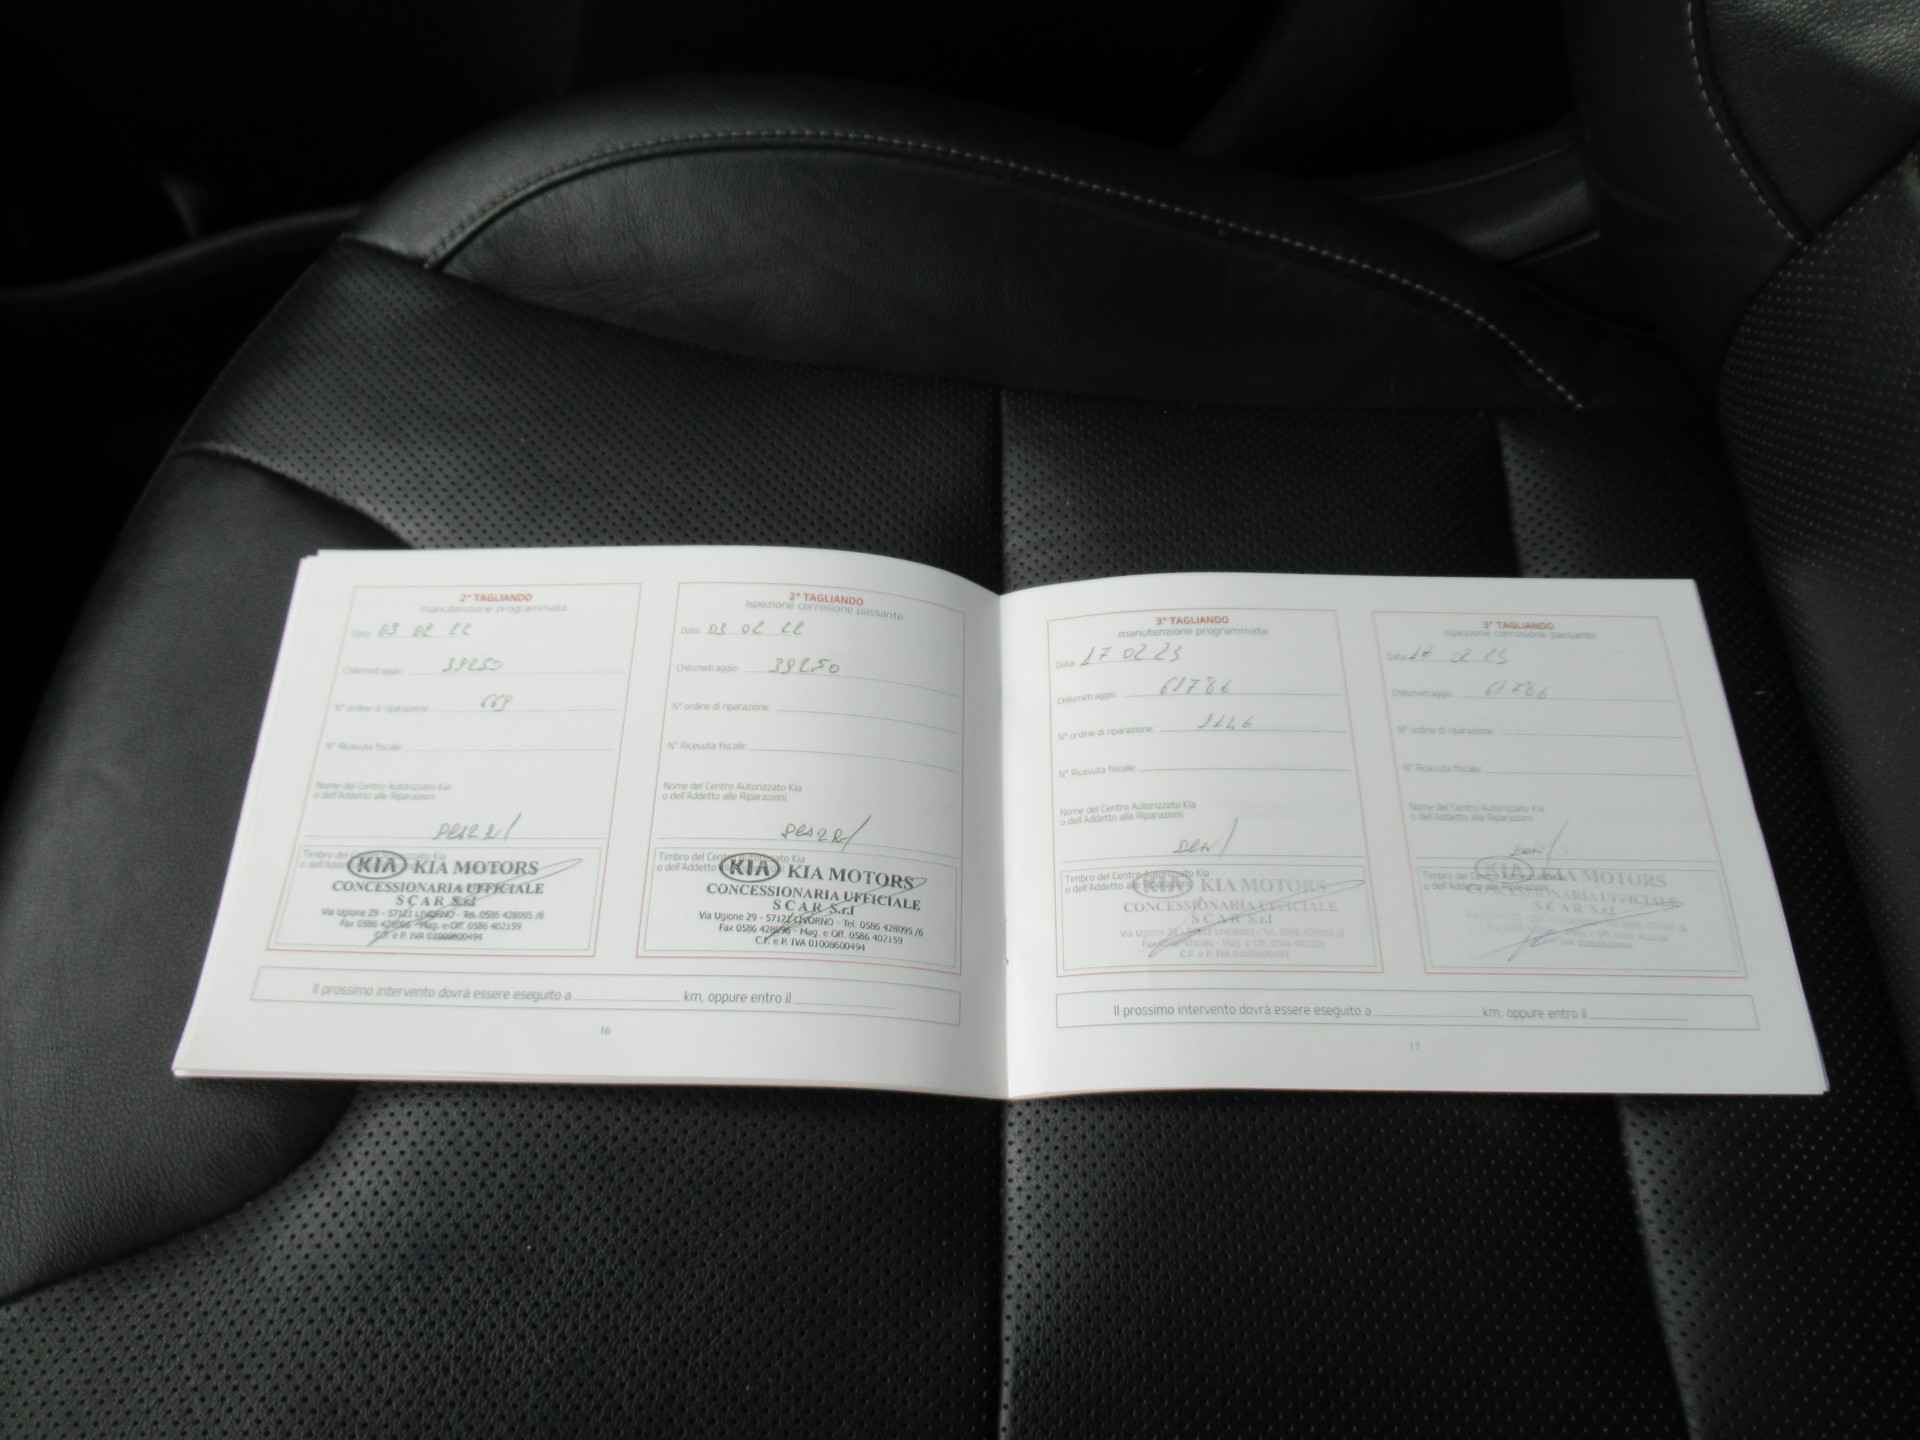 2° TAGLIANDO
manutenzione programmata
Data 03 02 22
Chilometraggio 39250
N° ordine di riparazione 669
N° Ricevuta fiscale
Nome del Centro Autorizzato Kia
o dell'Addetto alle Riparazioni
Timbro del
o dell'Addetto
KIA KIA MOTORS
CONCESSIONARIA UFFICIALE
SCAR S.r.l
Via Ugione 29 - 57121 LIVORNO - Tel. 0586 428095 /6
Fax 0586 428096 - Mag. e Off. 0586 402159
C.F. e P. IVA 01008600494
2° TAGLIANDO
ispezione corrosione passante
Data 03 02 22
Chilometraggio 39250
N° ordine di riparazione
N° Ricevuta fiscale
Nome del Centro Autorizzato Kia
o dell'Addetto alle Riparazioni
Timbro del Centro Autorizzato Kia
o dell'Addetto
KIA KIA MOTORS
CONCESSIONARIA UFFICIALE
SCAR S.r.l
Via Ugione 29 - 57121 LIVORNO - Tel. 0586 428095 /6
Fax 0586 428096 - Mag. e Off. 0586 402159
C.F. e P. IVA 01008600494
Il prossimo intervento dovrà essere eseguito a km, oppure entro il
16
3° TAGLIANDO
manutenzione programmata
Data 17 02 23
Chilometraggio 61786
N° ordine di riparazione 1146
N° Ricevuta fiscale
Nome del Centro Autorizzato Kia
o dell'Addetto alle Riparazioni
Timbro del Centro Autorizzato Kia
o dell'Addetto alle
KIA KIA MOTORS
CONCESSIONARIA UFFICIALE
SCAR S.r.l
C.F. e P. IVA
3° TAGLIANDO
ispezione corrosione passante
Data 17 02 23
Chilometraggio 61786
N° ordine di riparazione
N° Ricevuta fiscale
Nome del Centro Autorizzato Kia
o dell'Addetto alle Riparazioni
Timbro del Centro Autorizzato Kia
o dell'Addetto alle Riparazioni
KIA KIA MOTORS
CONCESSIONARIA UFFICIALE
SCAR S.r.l
Il prossimo intervento dovrà essere eseguito a km, oppure entro il
17